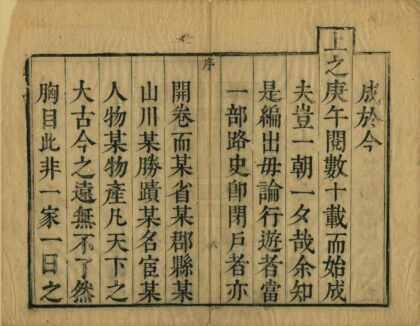 成於今
上之庚午閱數十載而始成
夫豈一朝一夕哉余知
是編出毋論行遊者當
一部路史卽閉戶者亦
序
八
開卷而某省某郡縣某
山川某勝蹟某名宦某
人物某物產凡天下之
大古今之遠無不了然
胸目此非一家一日之